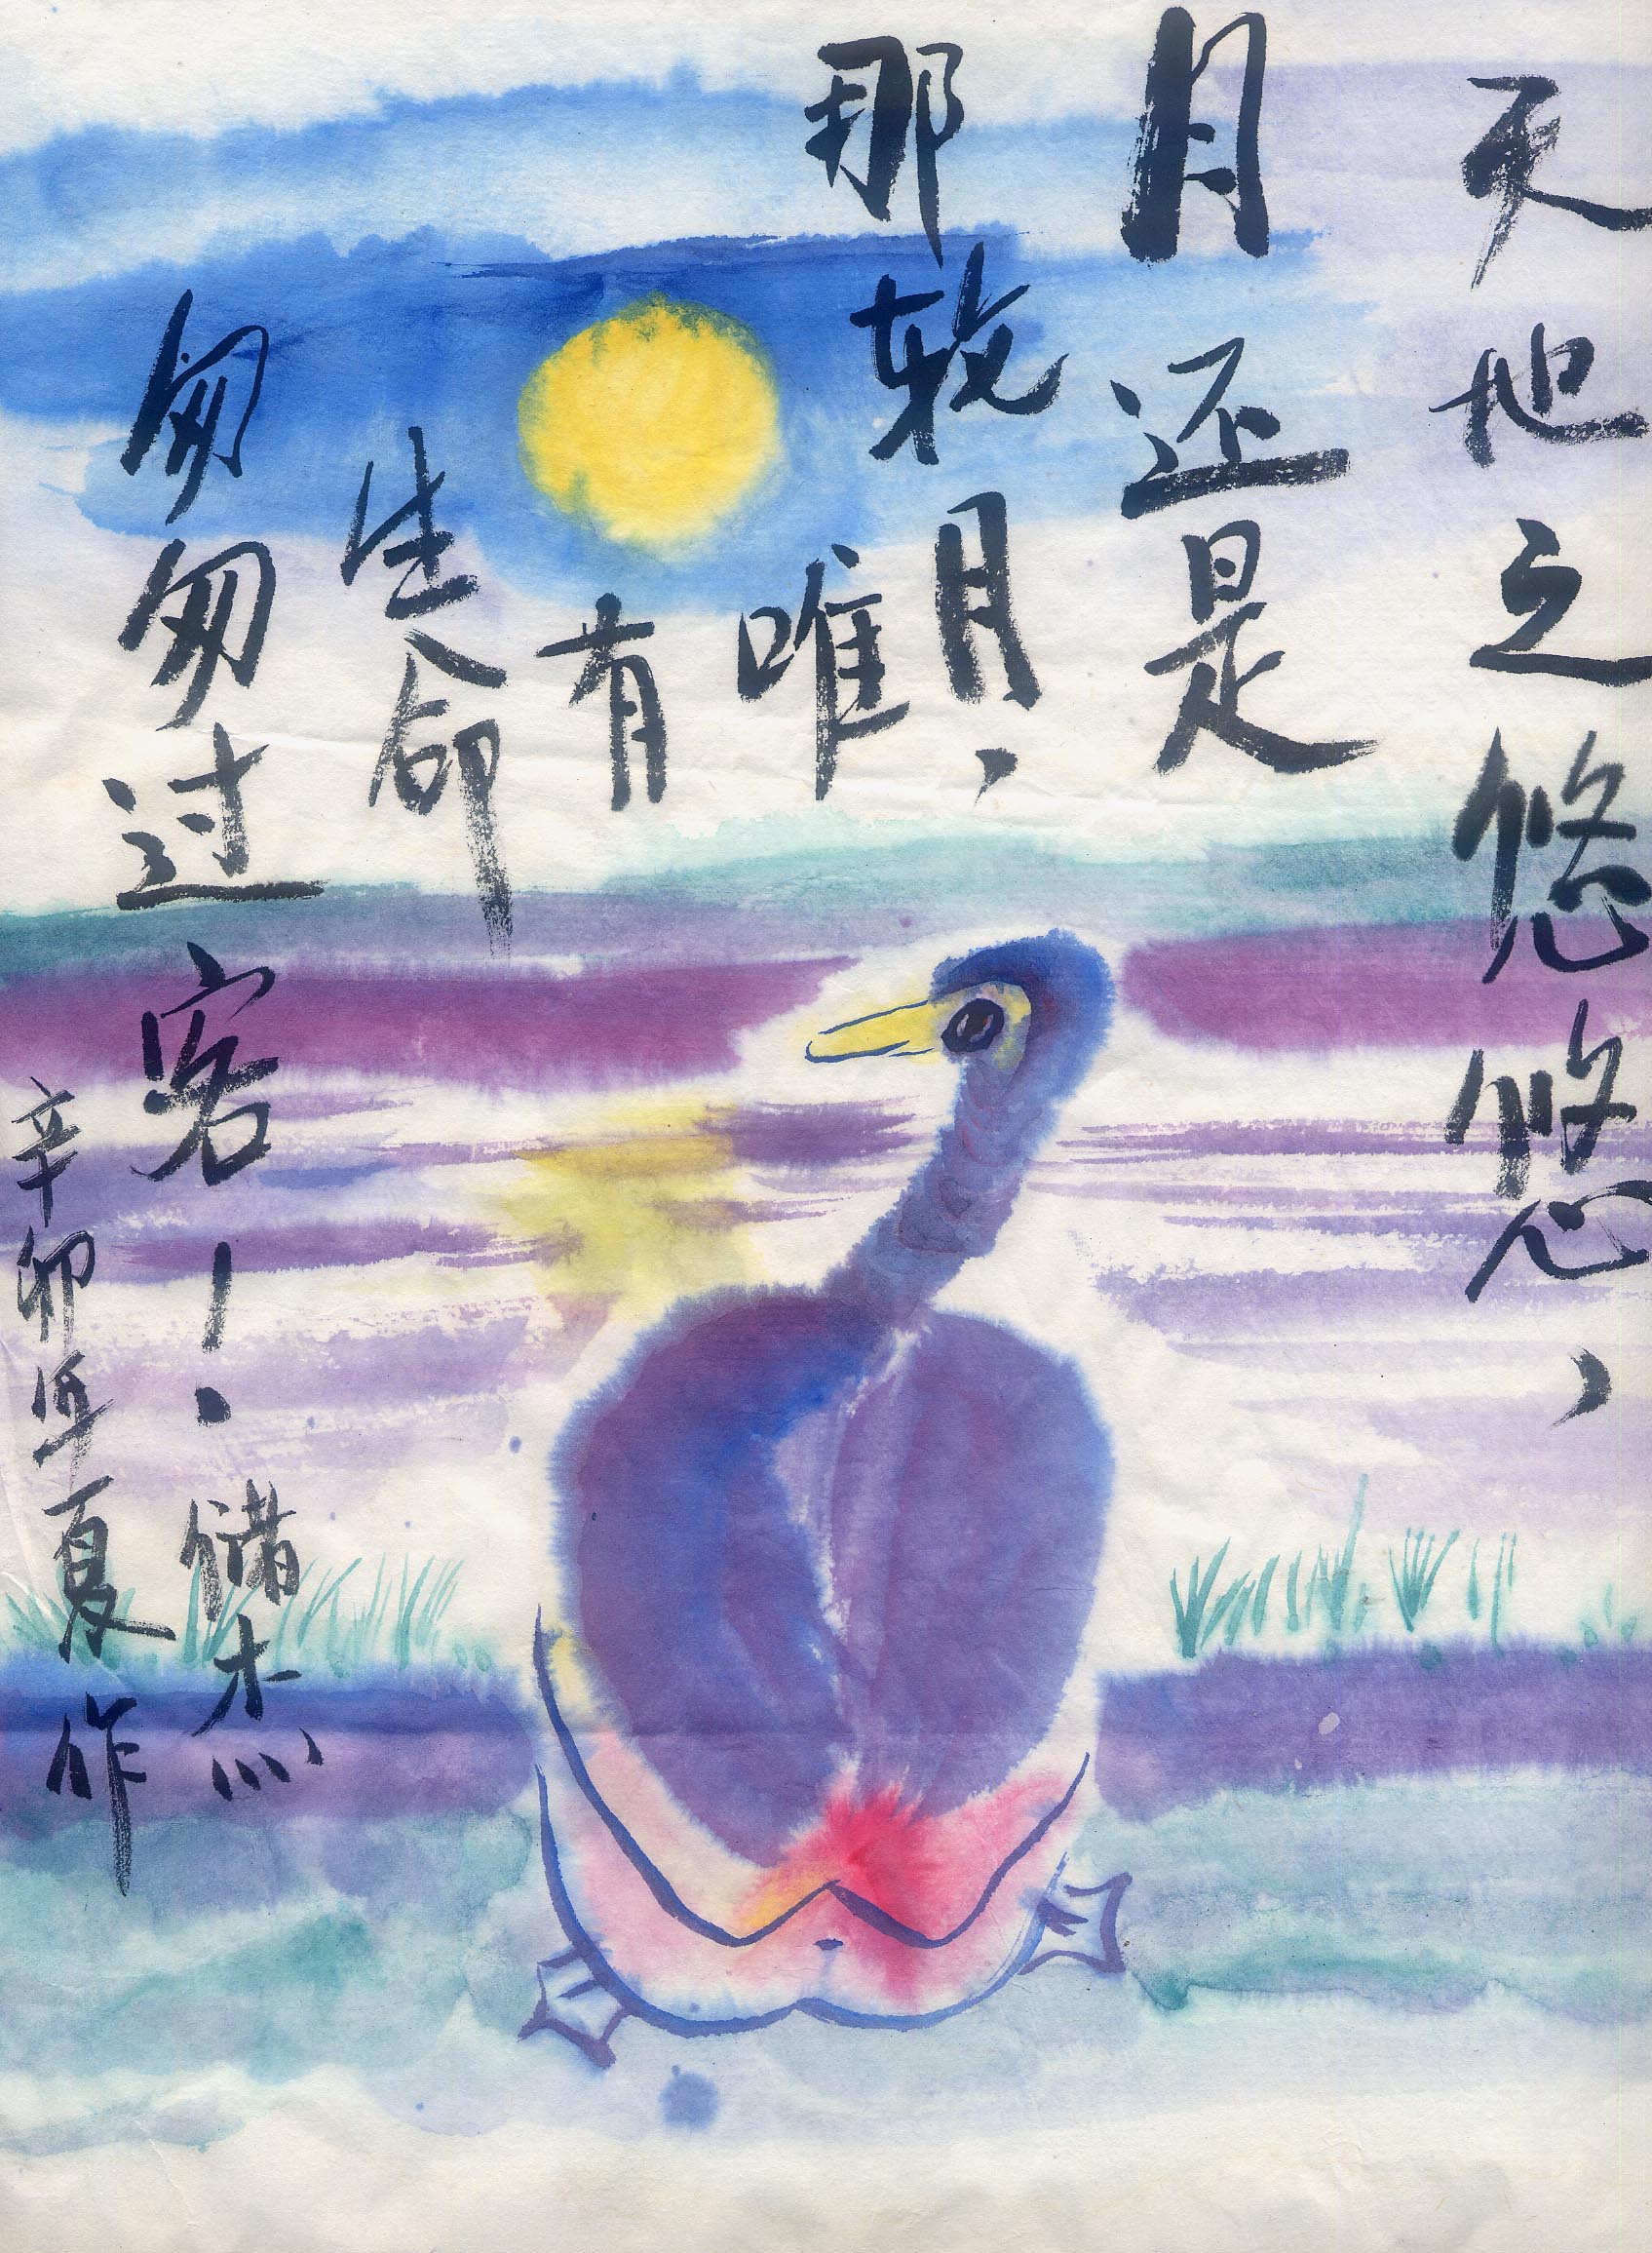 天地之悠悠、
月还是
那轮月、
唯
有
生命
匆匆过客！
储杰
辛卯年夏作